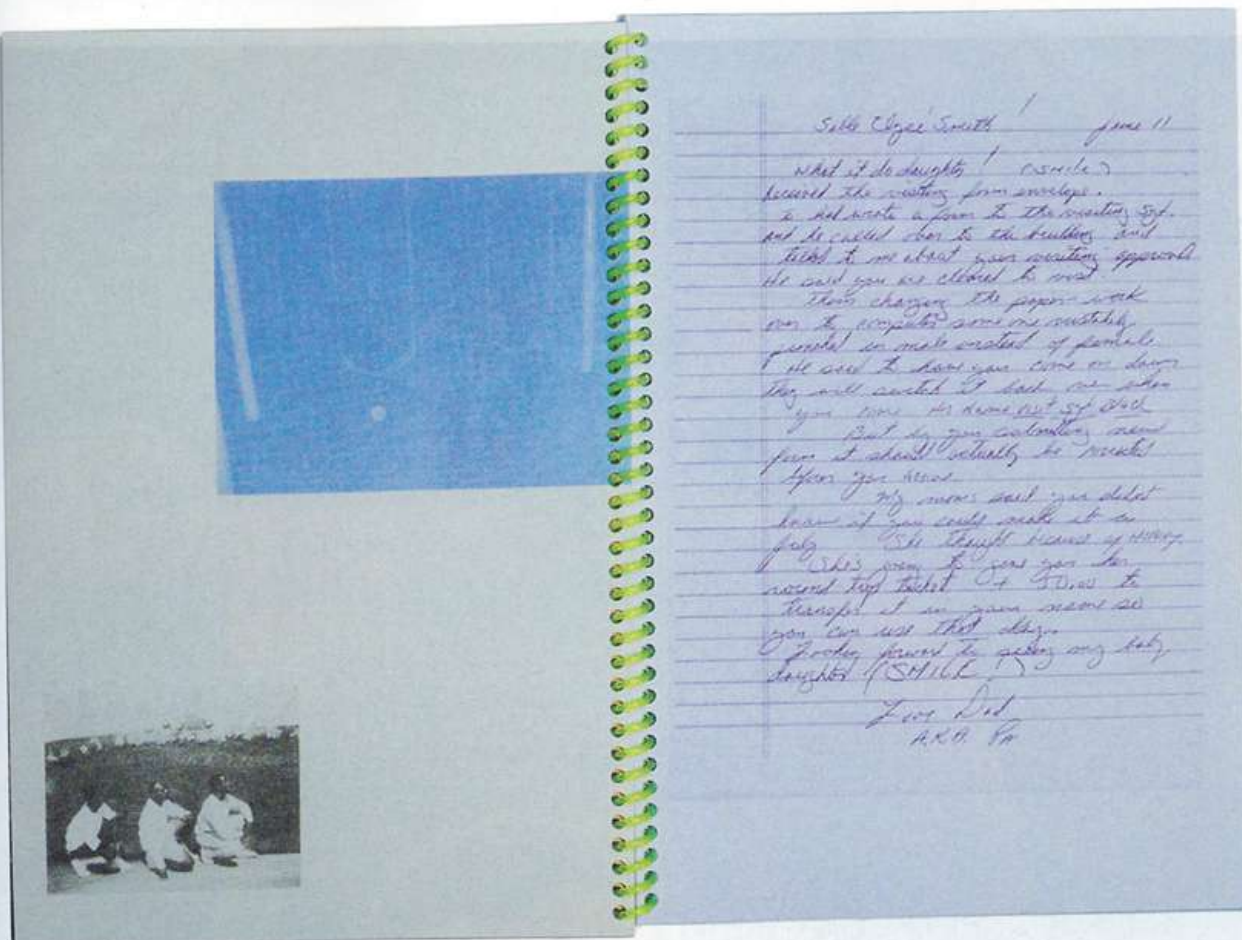 Sable Elyse Smith ! June 11
What it do daughter ! (SMILE)
Received the visiting form envelope.
I had wrote a form to the visiting Sgt.
and he called over to the building and
talked to me about your visiting approval
He said you are cleared to visit
changing the paper work
over to computer some one mistakely
punched in male instead of female.
He said to have you come on down
they will switch it back over when
you come His name visit Sgt
But by you submitting new
form it should actually be
before you
My moms said you didnt
know if you could make it in
July She thought because of
She's going to give you her
round trip ticket + 50.00 to
transfer it in your name so
you can use that day.
Looking forward to seeing my baby
daughter (SMILE!)
Love Dad
A.K.A. Pa